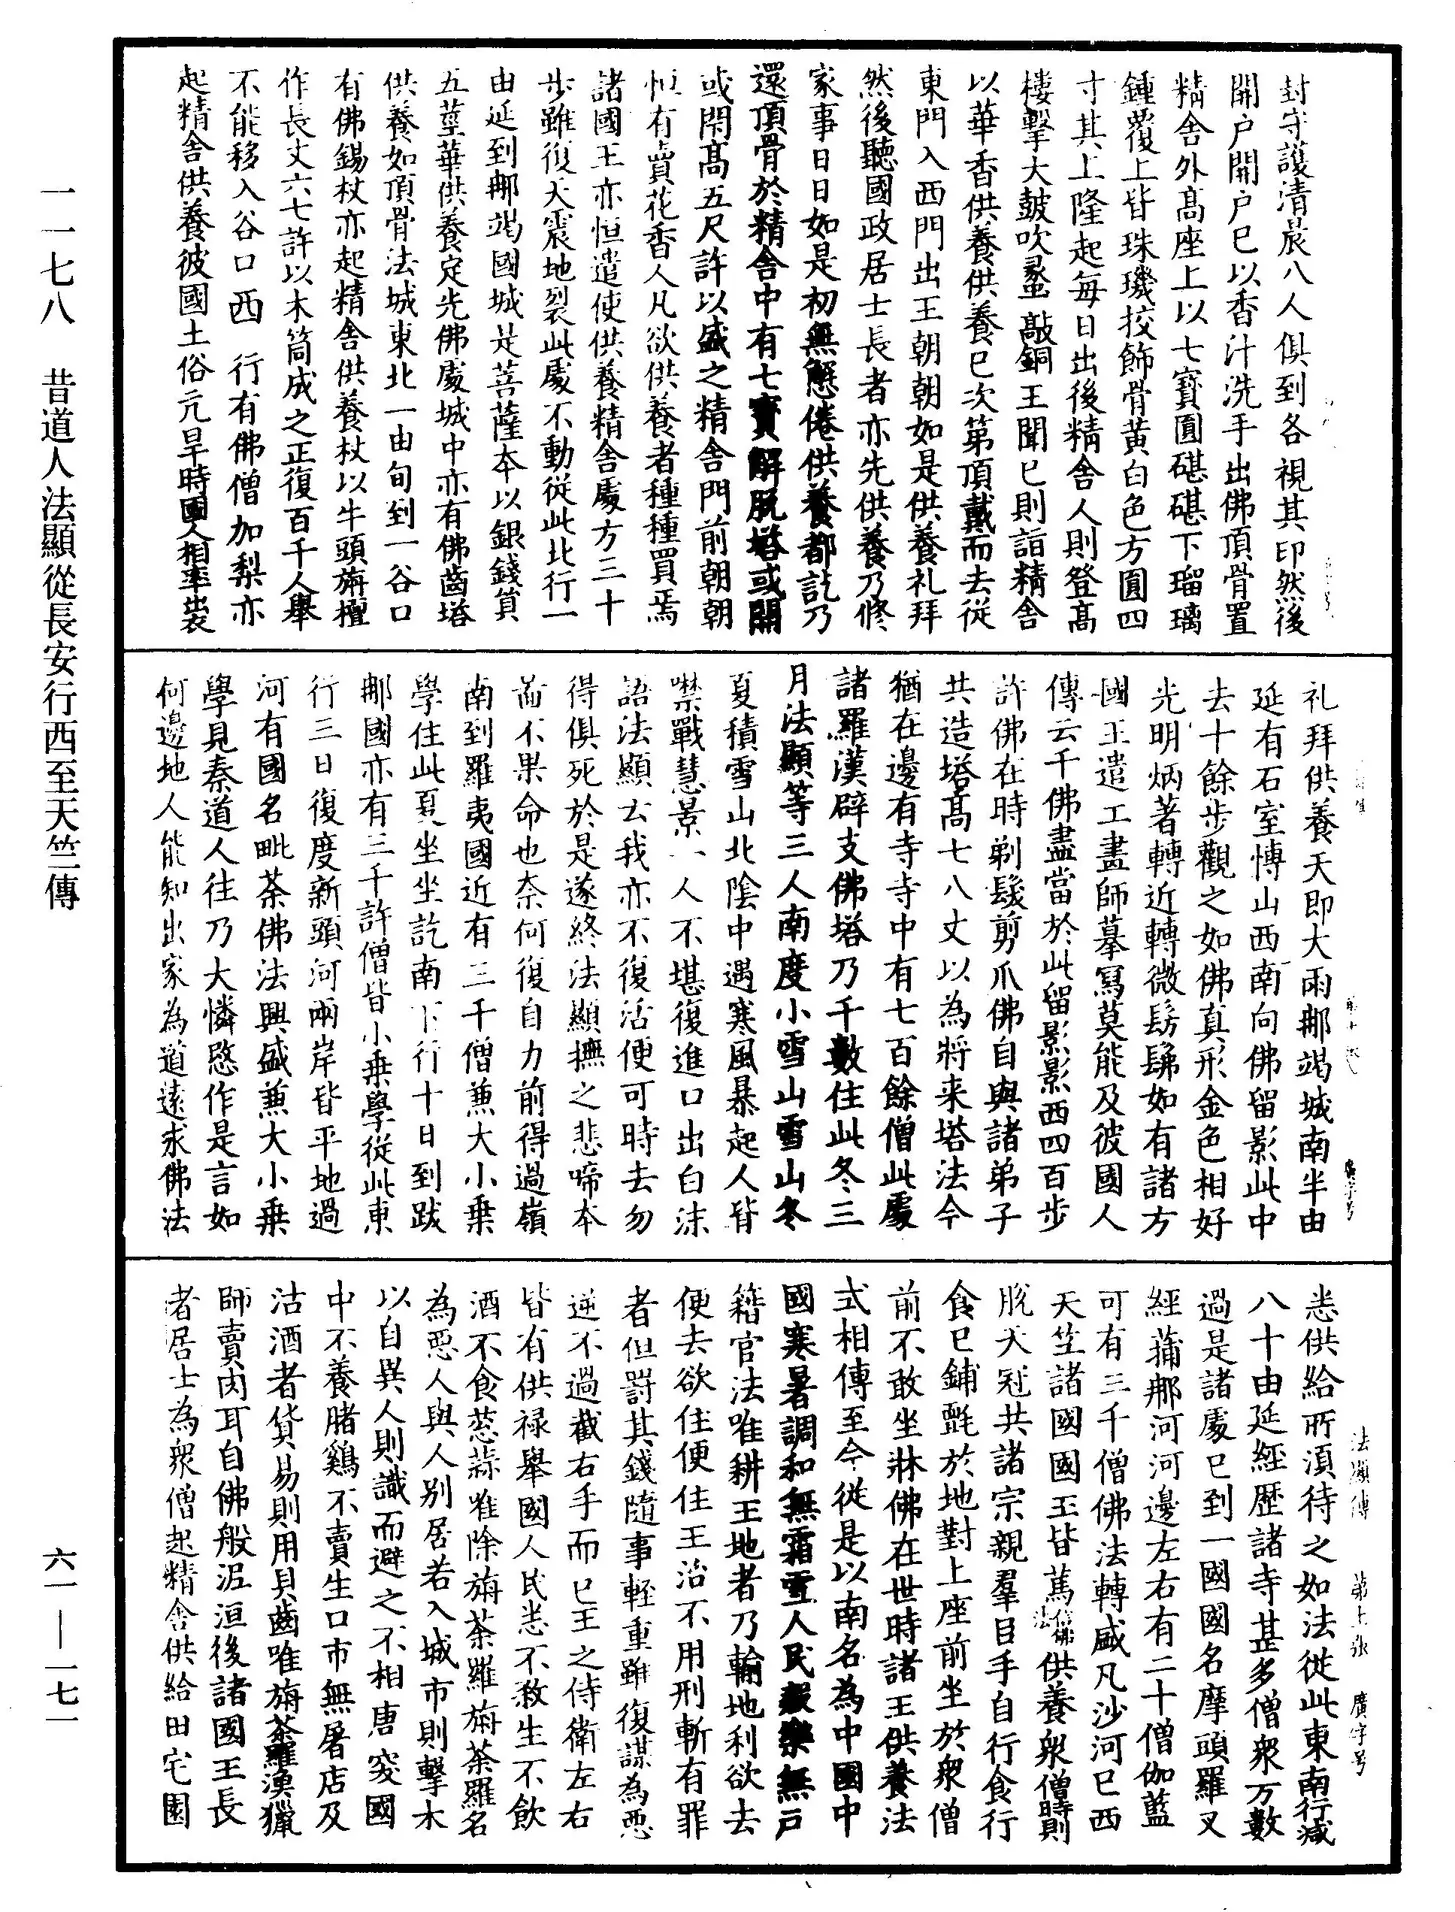 封守護清晨八人俱到各視其印然後
開户開户巳以香汁洗手出佛頂骨置
精舍外髙座上以七寶圓碪碪下瑠璃
鍾覆上皆珠璣挍飾骨黄白色方圓四
寸其上隆起每日出後精舍人則登髙
樓擊大鼓吹䗍敲銅王聞巳則詣精舍
以華香供養供養巳次第頂戴而去從
東門入西門出王朝朝如是供養礼拜
然後聽國政居士長者亦先供養乃修
家事日日如是初無懈惓供養都訖乃
還頂骨於精舍中有七寳解脫塔或開
或閇髙五尺許以盛之精舍門前朝朝
恒有賣花香人凡欲供養者種種買焉
諸國王亦恒遣使供養精舍處方三十
步雖復天震地裂此處不動從此北行一
由延到郍竭國城是菩薩夲以銀錢貿
五莖華供養定光佛處城中亦有佛齒塔
供養如頂骨法城東北一由旬到一谷口
有佛錫杖亦起精舍供養杖以牛頭旃檀
作長丈六七許以木筒成之正復百千人舉
不能移入谷口西 行有佛僧加梨亦
起精舍供養彼國土俗元旱時國人相率出衣
礼拜供養天即大雨郍竭城南半由
延有石室愽山西南向佛留影此中
去十餘步觀之如佛真形金色相好
光明炳著轉近轉微髣髴如有諸方
國王遣工畫師摹寫莫能及彼國人
傳云千佛盡當於此留影影西四百步
許佛在時剃髮剪爪佛自與諸弟子
共造塔髙七八丈以為將来塔法今
猶在邊有寺寺中有七百餘僧此處
諸羅漢辟支佛塔乃千數住此冬三
月法顯等三人南度小雪山雪山冬
夏積雪山北陰中遇寒風暴起人皆
噤戰慧景一人不堪復進口出白沫
語法顯云我亦不復活便可時去勿
得俱死於是遂終法顯撫之悲啼夲
啚不果命也奈何復自力前得過嶺
南到羅夷國近有三千僧兼大小乗
學住此夏坐坐訖南下行十日到跋
郍國亦有三千許僧皆小乗學從此東
行三日復度新頭河兩岸皆平地過
河有國名毗荼佛法興盛兼大小乗
學見秦道人往乃大憐愍作是言如
何邊地人能知出家為道遠求佛法
悉供給所湏待之如法從此東南行減
八十由延經歷諸寺甚多僧衆万數
過是諸處巳到一國國名摩頭羅又
經蒲郍河河邊左右有二十僧伽藍
可有三千僧佛法轉盛凡沙河巳西
天竺諸國國王皆篤信佛法供養衆僧時則
脫天冠共諸宗親羣臣手自行食行
食巳鋪氈於地對上座前坐於衆僧
前不敢坐牀佛在世時諸王供養法
式相傳至今從是以南名為中國中
國寒暑調和無霜雪人民殷樂無户
籍官法唯耕王地者乃輸地利欲去
便去欲住便住王治不用刑斬有罪
者但罸其錢隨事輕重雖復謀為惡
逆不過截右手而巳王之侍衛左右
皆有供禄舉國人民悉不殺生不飲
酒不食葱蒜唯除旃荼羅旃荼羅名
為惡人與人別居若入城市則擊木
以自異人則識而避之不相唐突國
中不養猪鷄不賣生口市無屠店及
沽酒者貨易則用貝齒唯旃荼羅漁獵
師賣肉耳自佛般泥洹後諸國王長
者居士為衆僧起精舍供給田宅園
法顯傳 第上张 廣字号
一一七八 昔道人法顯從長安行西至天竺傳
六一—一七一